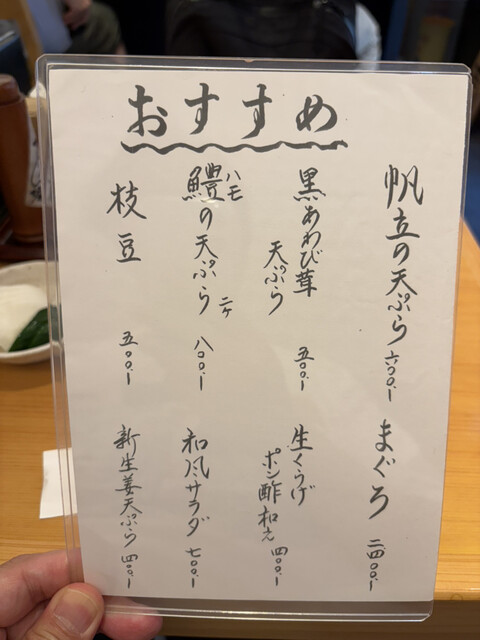 おすすめ
帆立の天ぷら 六〇〇.-
まぐろ 二四〇〇.-
黒あわび茸
天ぷら 五〇〇.-
生くらげ
ポン酢和え 四〇〇.-
鱧の天ぷら 二ケ 八〇〇.-
ハモ
和風サラダ 七〇〇.-
枝豆 五〇〇.-
新生姜天ぷら 四〇〇.-